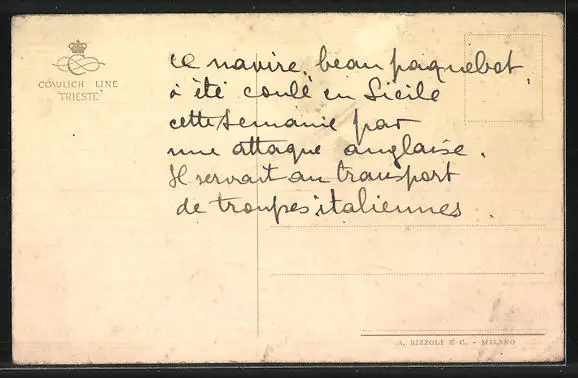 COSULICH LINE
TRIESTE
ce navire, beau paquebot
a été coulé en Sicile
cette semaine par
une attaque anglaise.
Il servait au transport
de troupes italiennes.
A. RIZZOLI E C. - MILANO